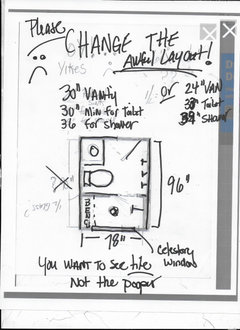 Please
CHANGE THE
AWFUL LAYOUT!
Yikes
30" VANITY
30" Min For Toilet
36 for shower
or
24" VAN
Toilet
Shower
96"
78"
Celestory
Window
YOU WANT TO See tile
Not the pooper